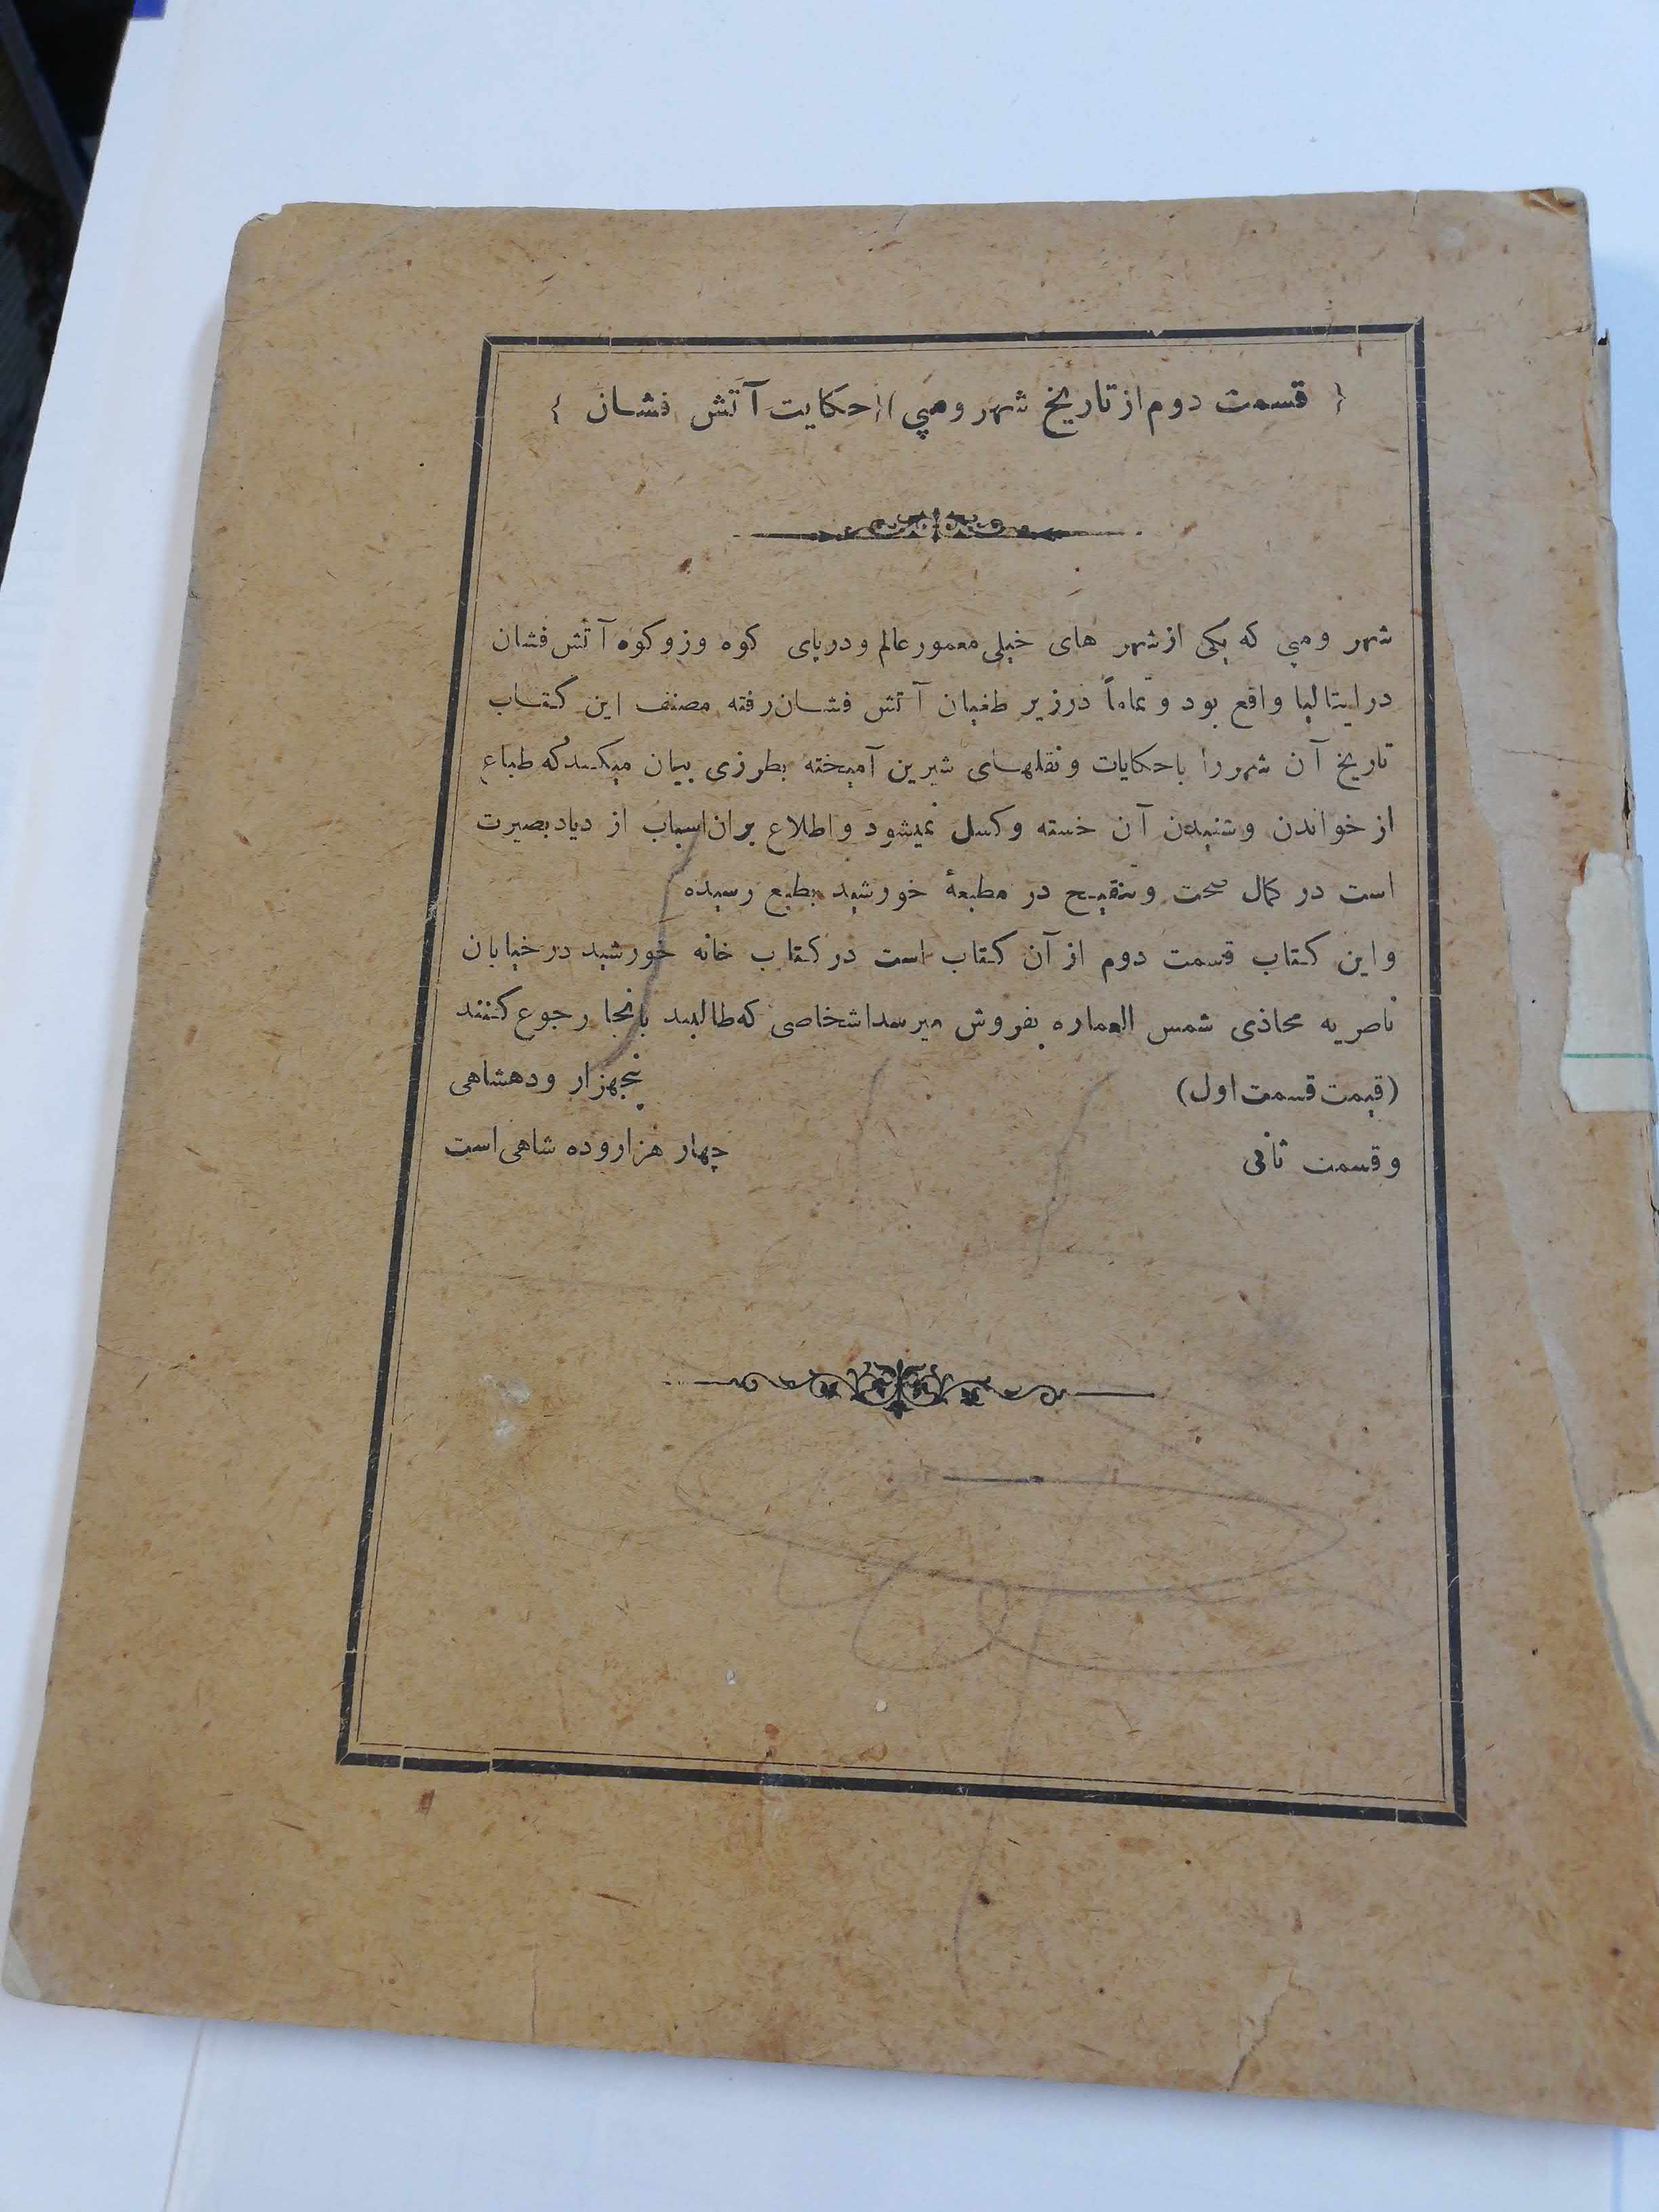 { قسمت دوم از تاریخ شهر ومپی )( حکایت آتش فشان }
شهر ومپی که یکی از شهر های خیلی معمور عالم و در پای کوه وزو کوه آتش فشان
در ایتالیا واقع بود و تماماً در زیر طغیان آتش فشان رفته مصنف این کتاب
تاریخ آن شهر را با حکایات و نقلهای شیرین آمیخته بطرزی بیان میکند که طباع
از خواندن و شنیدن آن خسته و کسل نمیشود و اطلاع بران اسباب از دیاد بصیرت
است در کمال صحت و تنقیح در مطبعهٔ خورشید بطبع رسیده
و این کتاب قسمت دوم از آن کتاب است در کتاب خانه خورشید در خیابان
ناصریه محاذی شمس العماره بفروش میرسد اشخاصی که طالبند بانجا رجوع کنند
(قیمت قسمت اول) پنجهزار و دهشاهی
و قسمت ثانی چهار هزار و ده شاهی است